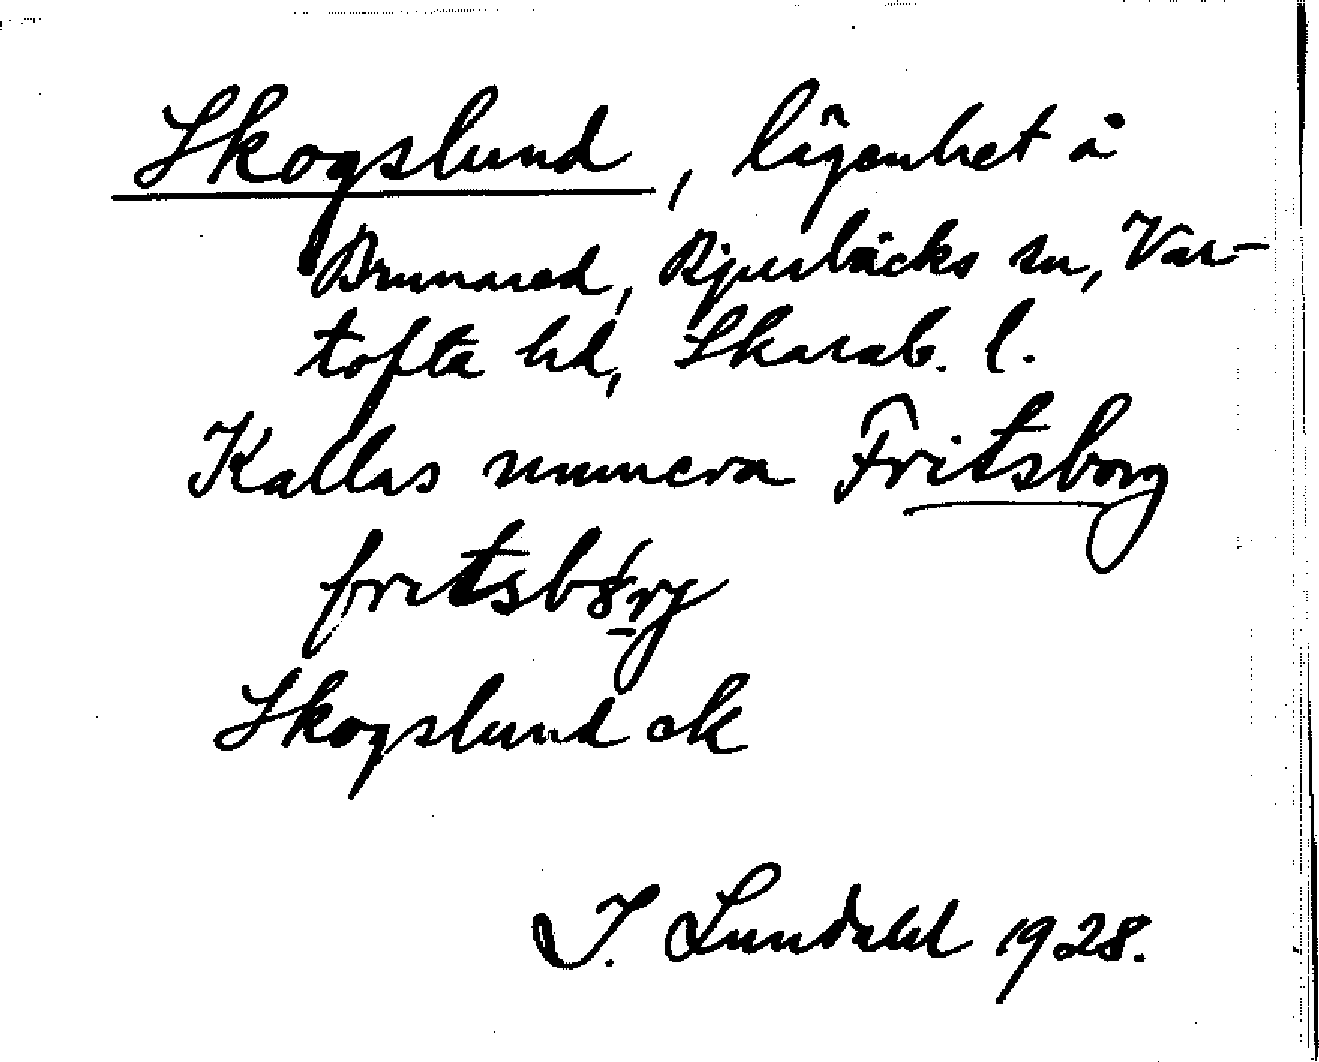 Skogslund, lägenhet å
Brunared, Bjurbäcks sn, Var-
tofta hd, Skarab. l.
Kallas numera Fritsborg
fritsbȯrj
Skogslund ek
I. Lundahl 1928.